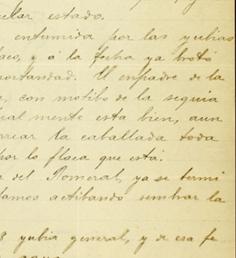 ular estado.
entumida por las yubias
aco, y á la fecha ya brotó
ortandad. El enpadre de la
a, con motibo de la seguia
ial mente esta bien, aun
rrear la caballada toda
por lo flaca que está.
a del Romeral, ya se termi
tamos actibando sembrar la
8 yubia general, y de esa fe
agua